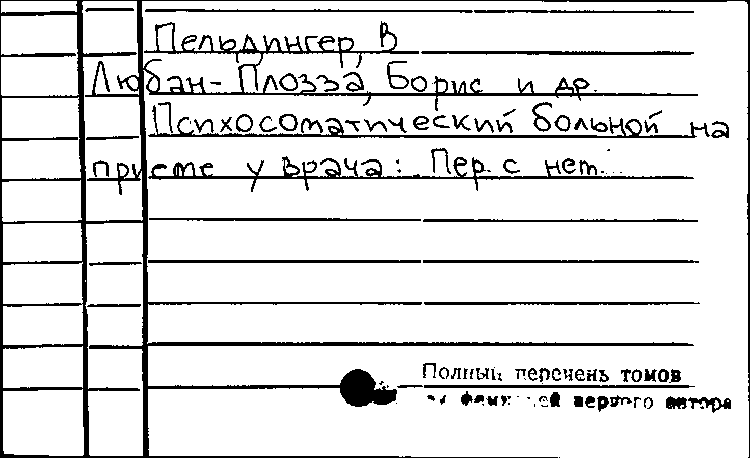 Пельдингер, В
Любан-Плозза, Борис и др.
Психосоматический больной на
приеме у врача: Пер. с нем.
Полный перечень томов
фамилией первого автора